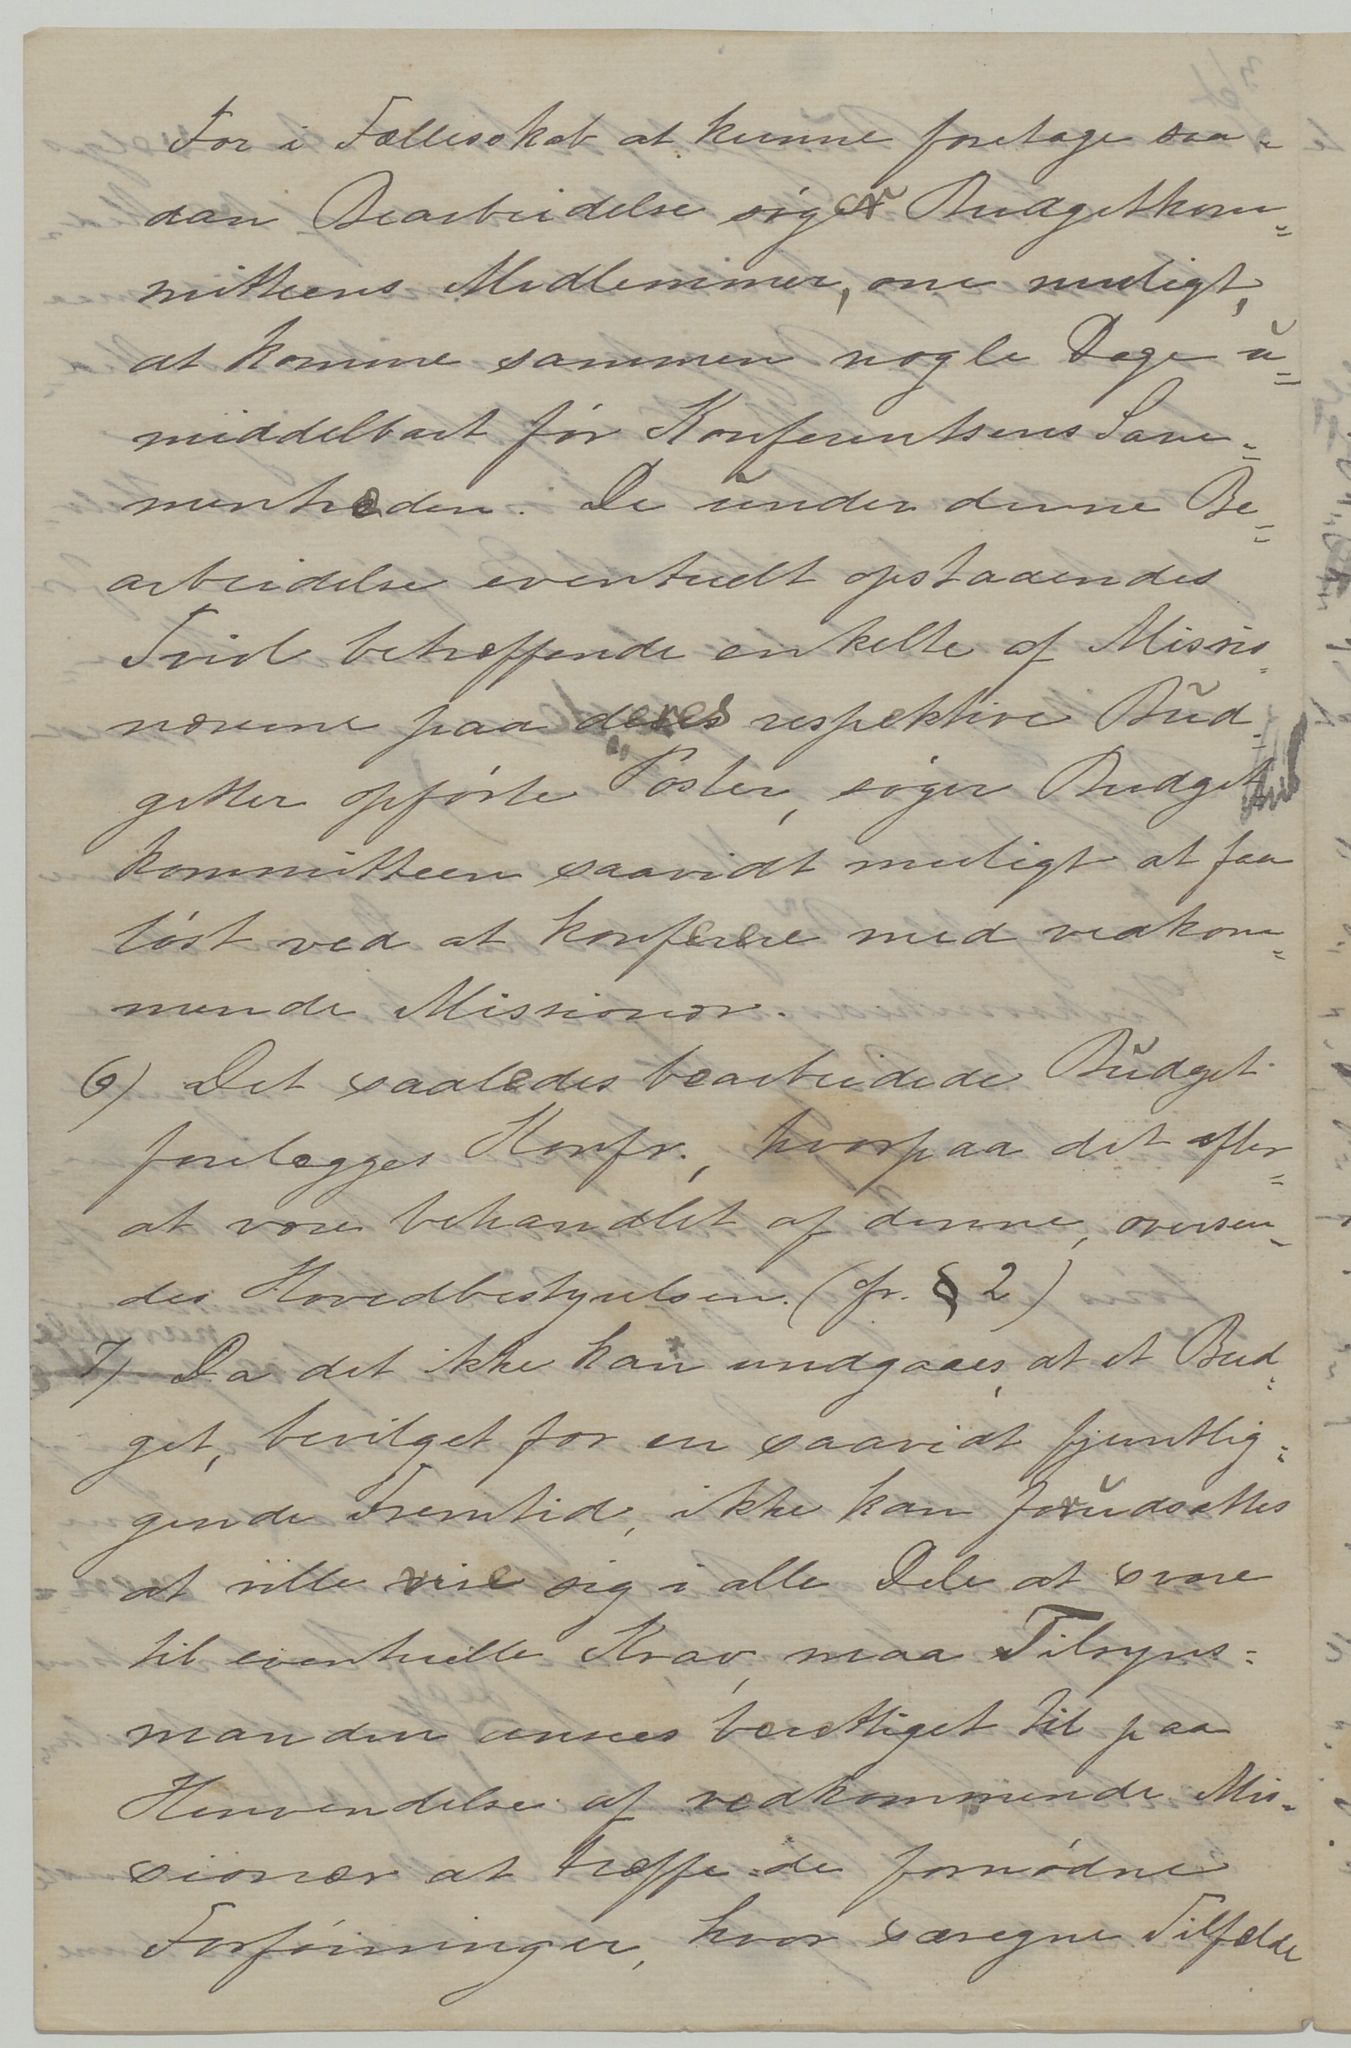 For i Fællesskab at kunne foretage saa-
dan Bearbeidelse søger Budgetkom-
mitteens Medlemmer, om muligt,
at komme sammen nogle Dage u-
middelbart før Konferentsens Sam-
mentræden. De under denne Be-
arbeidelse eventuelt opstaaendes
Tvivl betræffende enkelte af Missio-
nærerne paa deres respektive Bud-
getter opførte Poster, søger Budget
kommitteen saavidt muligt at faa
løst ved at konferere med vedkom-
mende Missionær.
6) Det saaledes bearbeidede Budget
forelægges Konfr., hvorpaa det efter-
at være behandlet af denne, oversen-
des Hovedbestyrelsen. (cfr. § 2)
7) Da det ikke kan undgaaes, at et Bud-
get, bevilget for en saavidt fjerntlig-
gende Fremtid, ikke kan forudsættes
at ville vise sig i alle Dele at svare
til eventuelle Krav, maa Tilsyns-
manden ansees berettiget til paa
Henvendelse af vedkommende Mis-
sionær at træffe de fornødne
Forføininger, hvor særegne Tilfælde